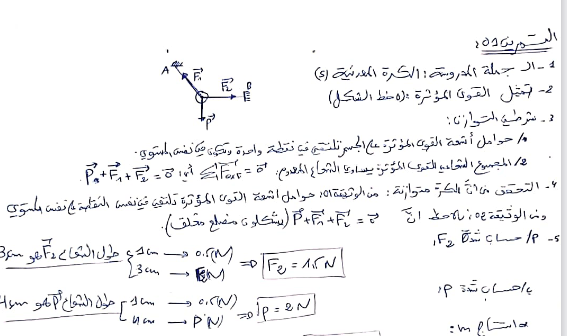 التمرين 01:
A
F₁
F₂
B
P
1- الجملة المدروسة: الكرة المعدنية (S)
2- تمثيل القوى المؤثرة: (لاحظ الشكل)
3- شرطي التوازن:
1/ حوامل أشعة القوى المؤثرة على الجسم تلتقي في نقطة واحدة وتكون في نفس المستوي.
2/ المجموع الشعاعي للقوى المؤثرة يساوي الشعاع المعدوم. P+F₁+F₂=0 أي
4- التحقق من أن الكرة متوازنة: من الوثيقة 01: حوامل أشعة القوى المؤثرة تلتقي في نفس النقطة في نفس المستوي
ومن الوثيقة 02: نلاحظ أن P+F₁+F₂=0 (يشكلون مضلع مغلق).
5- 1/ حساب شدة F₂:
طول الشعاع F₂ هو 3cm
1cm → 0.5(N)
3cm → F₂(N) ⇒ F₂=1.5N
ب/ حساب شدة P:
طول الشعاع P هو 4cm
1cm → 0.5(N)
4cm → P(N) ⇒ P=2N
استنتاج m: